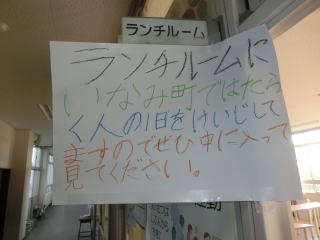 ランチルーム
ランチルームに
いなみ町ではたら
く人の1日をけいじして
ますのでぜひ中に入って
見てください。